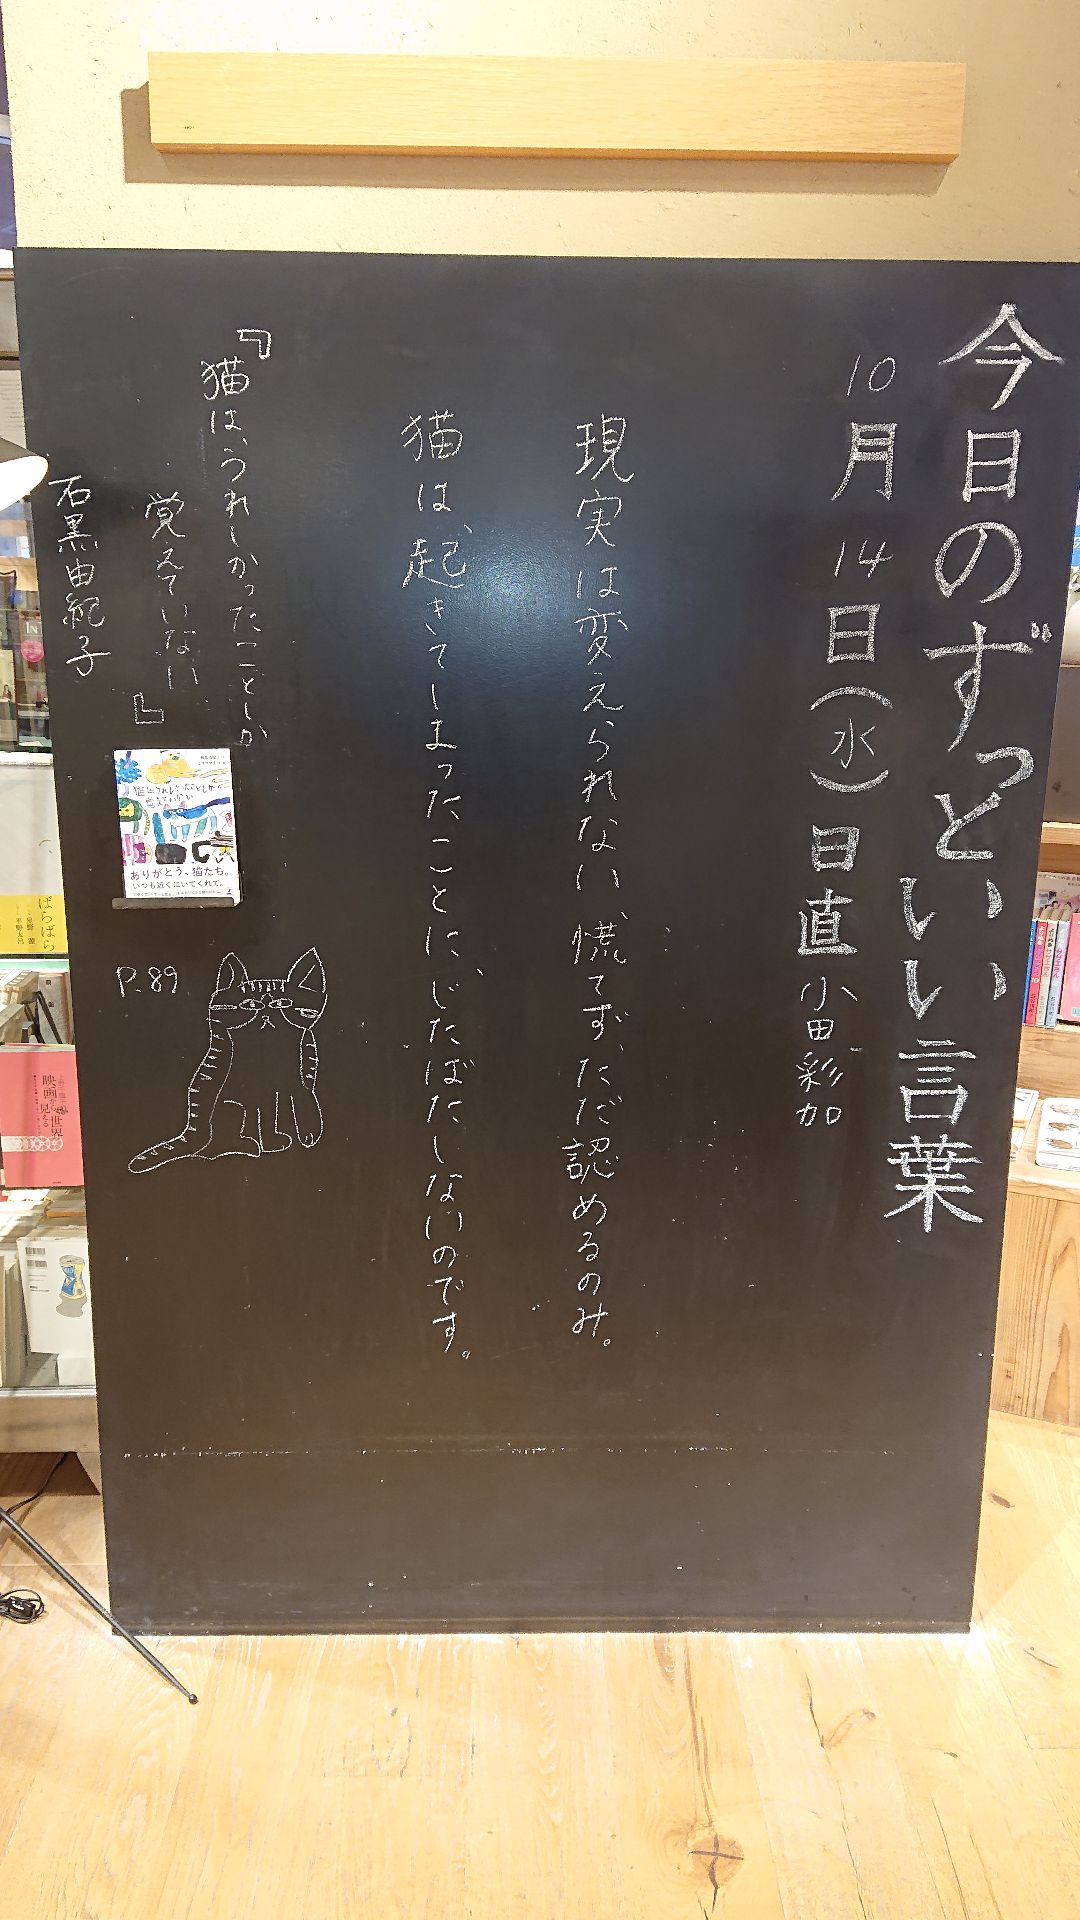 今日のずっといい言葉
10月14日(水)日直 小田彩加
現実は変えられない、慌てず、ただ認めるのみ。
猫は、起きてしまったことに、じたばたしないのです。
『猫は、うれしかったことしか
覚えていない』
石黒由紀子
猫は、うれしかったことしか
覚えていない
ありがとう、猫たち。
いつも近くにいてくれて。
P.89
ばらばら
星野 源
平野太呂
映画から世界
見える